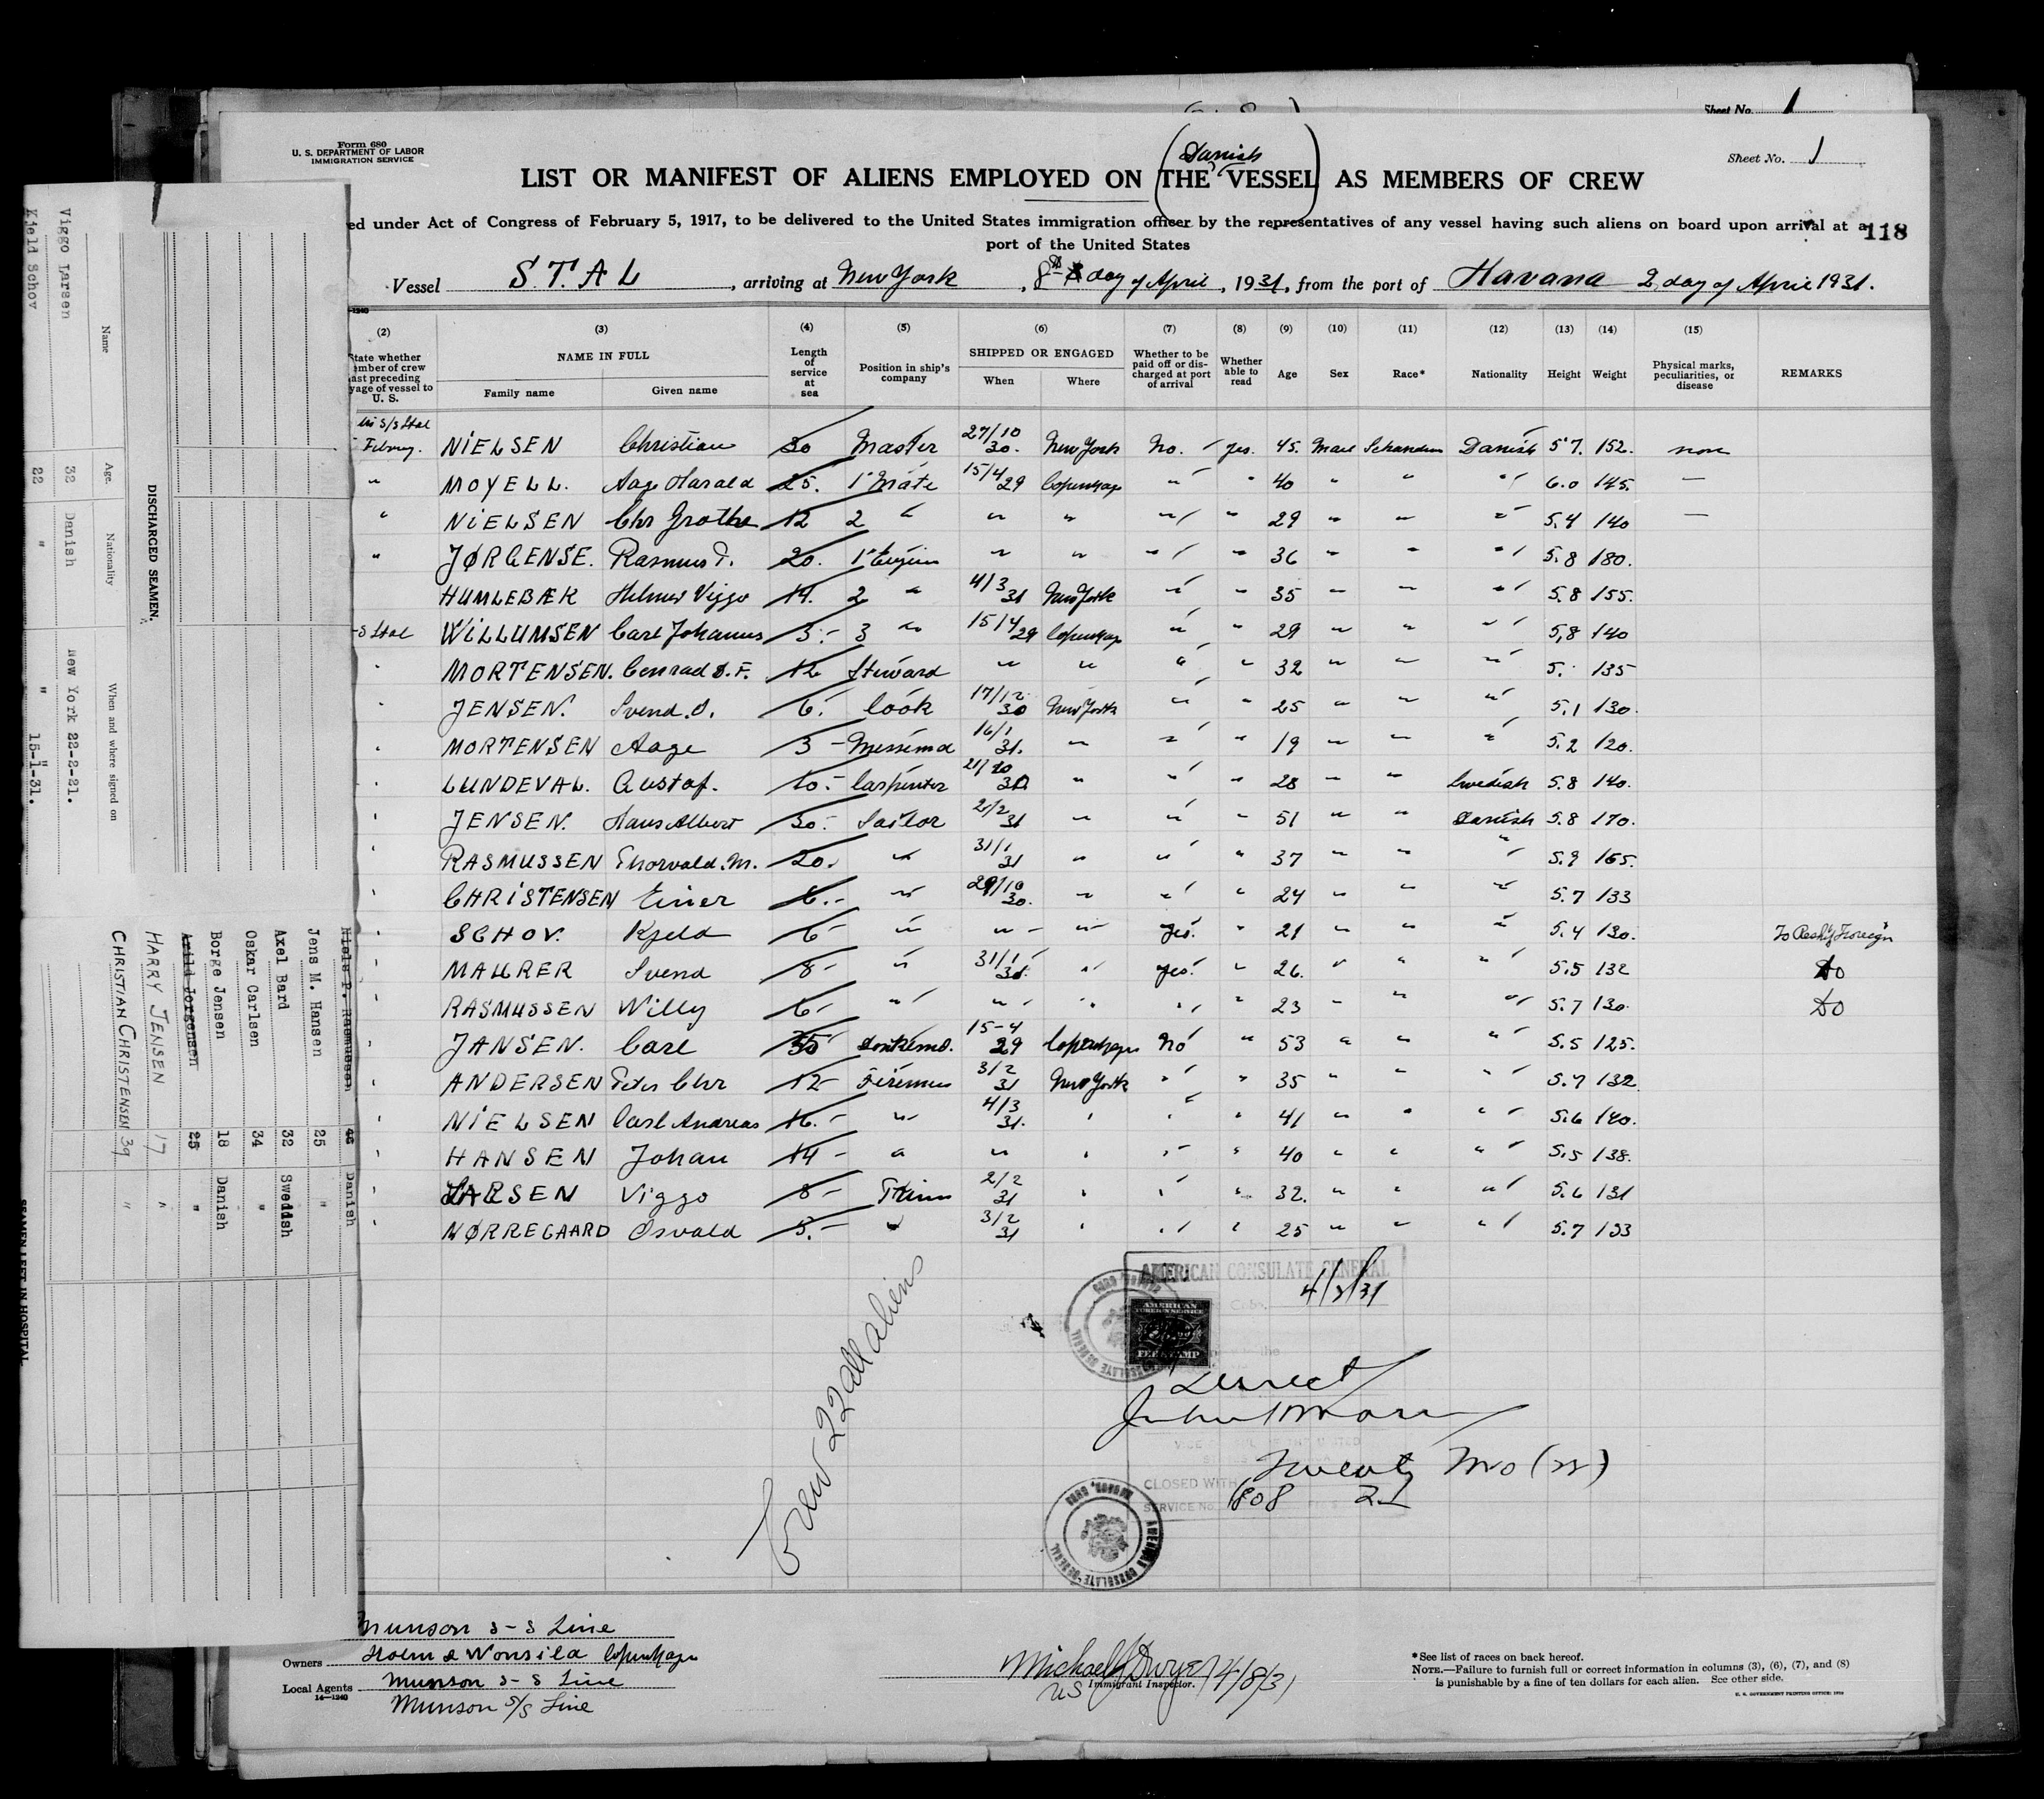 Sheet No. 1
Form 680
U. S. DEPARTMENT OF LABOR
IMMIGRATION SERVICE
Sheet No. 1
Danish
LIST OR MANIFEST OF ALIENS EMPLOYED ON (THE VESSEL) AS MEMBERS OF CREW
ed under Act of Congress of February 5, 1917, to be delivered to the United States immigration officer by the representatives of any vessel having such aliens on board upon arrival at a
118
port of the United States
Vessel STAL, arriving at New York, 8th day of April, 1931, from the port of Havana 2 day of April 1931.
(2) (3) (4) (5) (6) (7) (8) (9) (10) (11) (12) (13) (14) (15)
State whether
ember of crew
ast preceding
yage of vessel to
U. S.
NAME IN FULL
Family name Given name
Length of service at sea
Position in ship's company
SHIPPED OR ENGAGED
When Where
Whether to be paid off or discharged at port of arrival
Whether able to read
Age Sex Race* Nationality Height Weight
Physical marks, peculiarities, or disease
REMARKS
S/S Stal
NIELSEN Christian 30 Master 27/10 30. New York No. yes. 45. Danish 5 7. 152. none
" MOYELL. Aage Harald 25. 1 Mate 15/4 29 Copenhage " " 40 " " " 6.0 145. —
" NIELSEN Chr Grothe 12 2 " " " " " 29 " " " 5.4 140 —
" JØRGENSE. Rasmus 20. 1 " " " " 36 " " " 5.8 180.
HUMLEBÆK Helmer Viggo 19. 2 " 4/3 31 New York " " 35 " " " 5.8 155.
S Stal WILLUMSEN Carl Johannes 3.- 3 " 15/4 29 Copenhage " " 29 " " " 5,8 140
MORTENSEN. Conrad 12 Steward " " " " 32 " " " 5. 135
JENSEN. Svend. 6. Cook 17/12 30 New York " " 25 " " " 5.1 130.
MORTENSEN Aage 3 - Messemd 16/1 31. " " " 19 " " " 5.2 120.
LUNDEVAL. Gustaf. 10.- Carpenter 21/10 30 " " " 28 " " Swedish 5.8 140.
JENSEN. Hans Albert 30. Sailor 2/2 31 " " " 51 " " Danish 5.8 170.
RASMUSSEN Thorvald. M. 20. " 31/1 31 " " " 37 " " " 5.9 165.
CHRISTENSEN Einer 6.- " 29/10 30. " " " 24 " " " 5.7 133
SCHOV. Kjeld 6- " " " yes. " 21 " " " 5.4 130. To Reship Foreign
MAURER Svend 8- " 31/1 31. " yes. " 26. " " " 5.5 132 do
RASMUSSEN Willy 6- " " " " " 23 " " " 5.7 130. do
JANSEN. Carl 35 15-4 29 Copenhage No " 53 " " " 5.5 125.
ANDERSEN Peter Chr 12- Firemen 3/2 31 New York " " 35 " " " 5.7 132
NIELSEN Carl Andreas 16.- " 4/3 31. " " " 41 " " " 5.6 140.
HANSEN Johan 14- " " " " " 40 " " " 5.5 138.
LARSEN Viggo 8- 2/2 31 " " " 32. " " " 5.6 131
NØRREGAARD Osvald 5.- " 3/2 31 " " " 25 " " " 5.7 133
Crew 22 all aliens
AMERICAN CONSULATE GENERAL
4/2/31
AMERICAN
FOREIGN SERVICE
FEE STAMP
Direct
Twenty two (22)
CLOSED WITH
1808 21
SERVICE No.
AMERICAN CONSULATE GENERAL
Munson S-S Line
Owners Holm & Wonsild Copenhagen
Local Agents Munson S-S Line
14—1240
Munson S/S Line
Michael J Dwyer 4/8/31
US Immigrant Inspector.
*See list of races on back hereof.
NOTE.—Failure to furnish full or correct information in columns (3), (6), (7), and (8)
is punishable by a fine of ten dollars for each alien. See other side.
U. S. GOVERNMENT PRINTING OFFICE
DISCHARGED SEAMEN.
Name Age. Nationality When and where signed on
Viggo Larsen 32 Danish New York 22-2-21.
Kjeld Schov 22 " " 15-1-31.
Niels P. Rasmussen 46 Danish
Jens M. Hansen 25 "
Axel Bard 32 Swedish
Oskar Carlsen 34 "
Borge Jensen 18 Danish
Arild Jorgensen 25 "
HARRY JENSEN 17 "
CHRISTIAN CHRISTENSEN 39 "
SEAMEN LEFT IN HOSPITAL